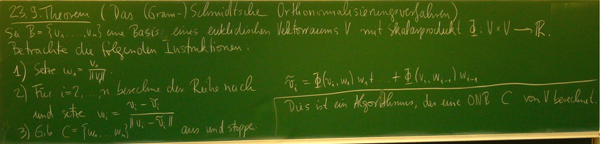 23.9. Theorem (Das (Gram-)Schmidtsche Orthonormalisierungsverfahren)
Sei B = {v₁, ..., vₙ} eine Basis eines euklidischen Vektorraums V mit Skalarprodukt Φ: V × V → ℝ.
Betrachte die folgenden Instruktionen:
1) Setze w₁ = v₁ / ‖v₁‖.
2) Für i = 2, ..., n berechne der Reihe nach ṽᵢ = Φ(vᵢ, w₁) w₁ + ... + Φ(vᵢ, wᵢ₋₁) wᵢ₋₁
und setze wᵢ = (vᵢ - ṽᵢ) / ‖vᵢ - ṽᵢ‖
3) Gib C = {w₁, ..., wₙ} aus und stoppe.
Dies ist ein Algorithmus, der eine ONB C von V berechnet.